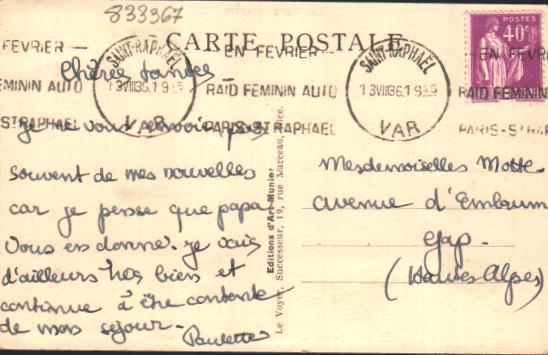 833367
CARTE POSTALE
POSTES
40c
EN FEVRIER
RAID FEMININ AUTO
PARIS-ST RAPHAEL
SAINT-RAPHAEL
13 VIII 36
VAR
EN FEVRIER
RAID FEMININ AUTO
PARIS-ST RAPHAEL
SAINT-RAPHAEL
13 VIII 36
VAR
EN FEVRIER
RAID FEMININ
PARIS-ST RAP
Chères tantes
Je ne vous envoie pas
souvent de mes nouvelles
car je pense que papa
vous en donne. Je vais
d'ailleurs très bien et
continue à être contente
de mon séjour.
Paulette
Editions d'Art Munier
Le Voyer, Successeur, 19, rue Marceau, Nice.
Mesdemoiselles Motte
avenue d'Embrun
Gap.
(Hautes Alpes)